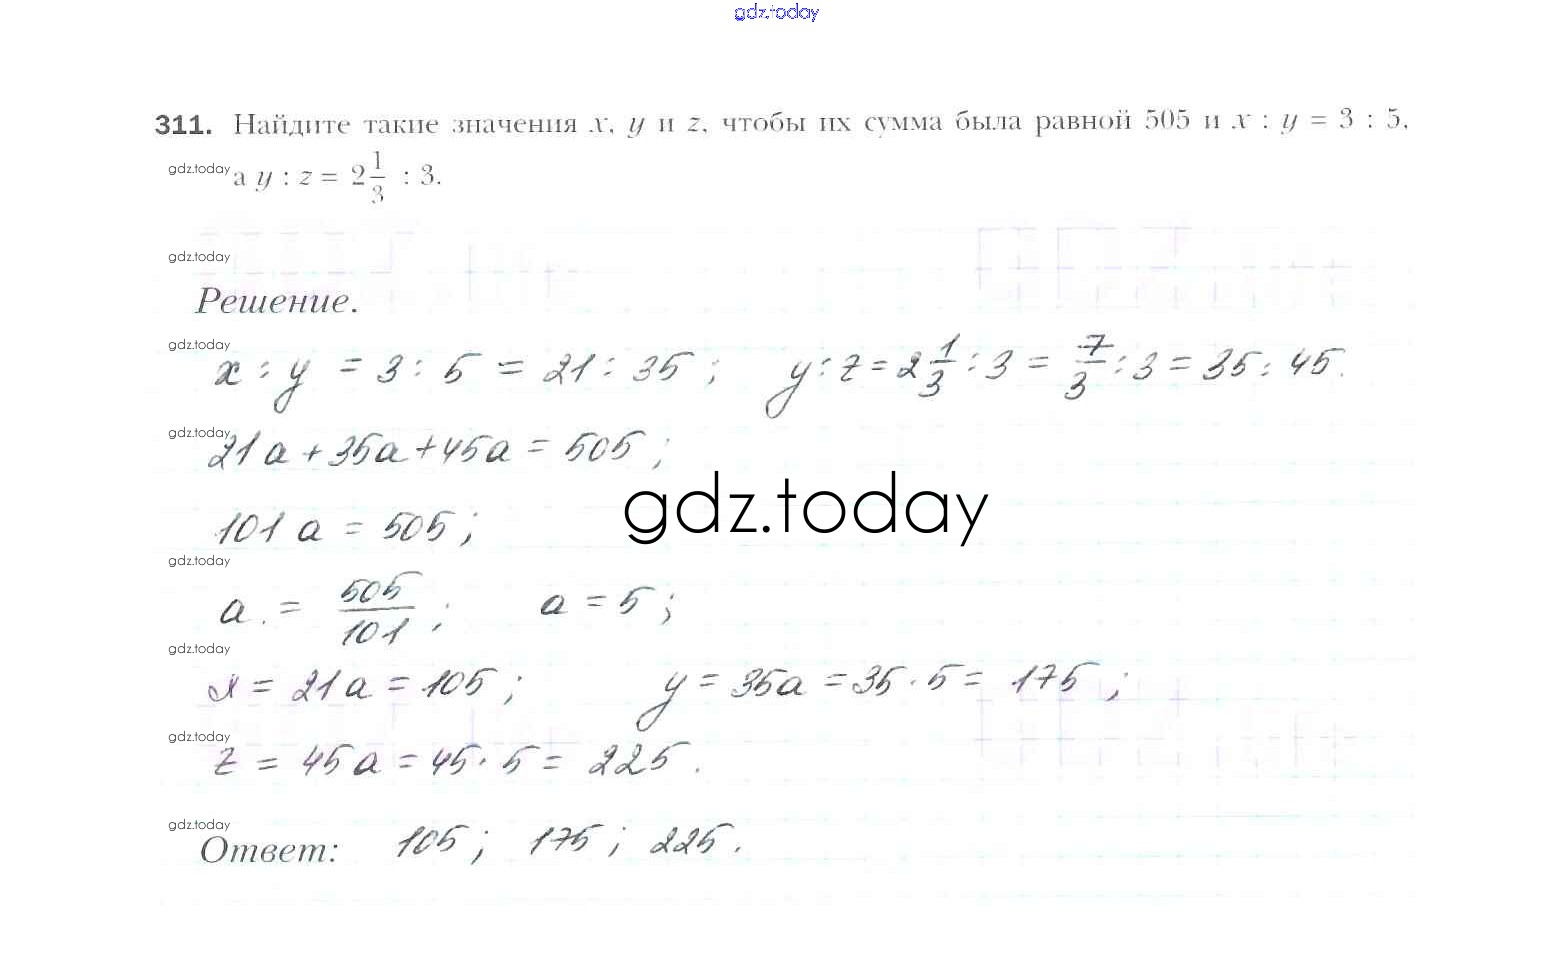 gdz.today
311. Найдите такие значения x, y и z, чтобы их сумма была равной 505 и x : y = 3 : 5,
gdz.today
а y : z = 2 1/3 : 3.
gdz.today
Решение.
gdz.today
x : y = 3 : 5 = 21 : 35 ; y : z = 2 1/3 : 3 = 7/3 : 3 = 35 : 45.
gdz.today
21a + 35a + 45a = 505 ;
gdz.today
101 a = 505 ;
gdz.today
a = 505/101 ; a = 5 ;
gdz.today
x = 21a = 105 ; y = 35a = 35 · 5 = 175 ;
gdz.today
z = 45a = 45 · 5 = 225 .
gdz.today
Ответ: 105 ; 175 ; 225 .